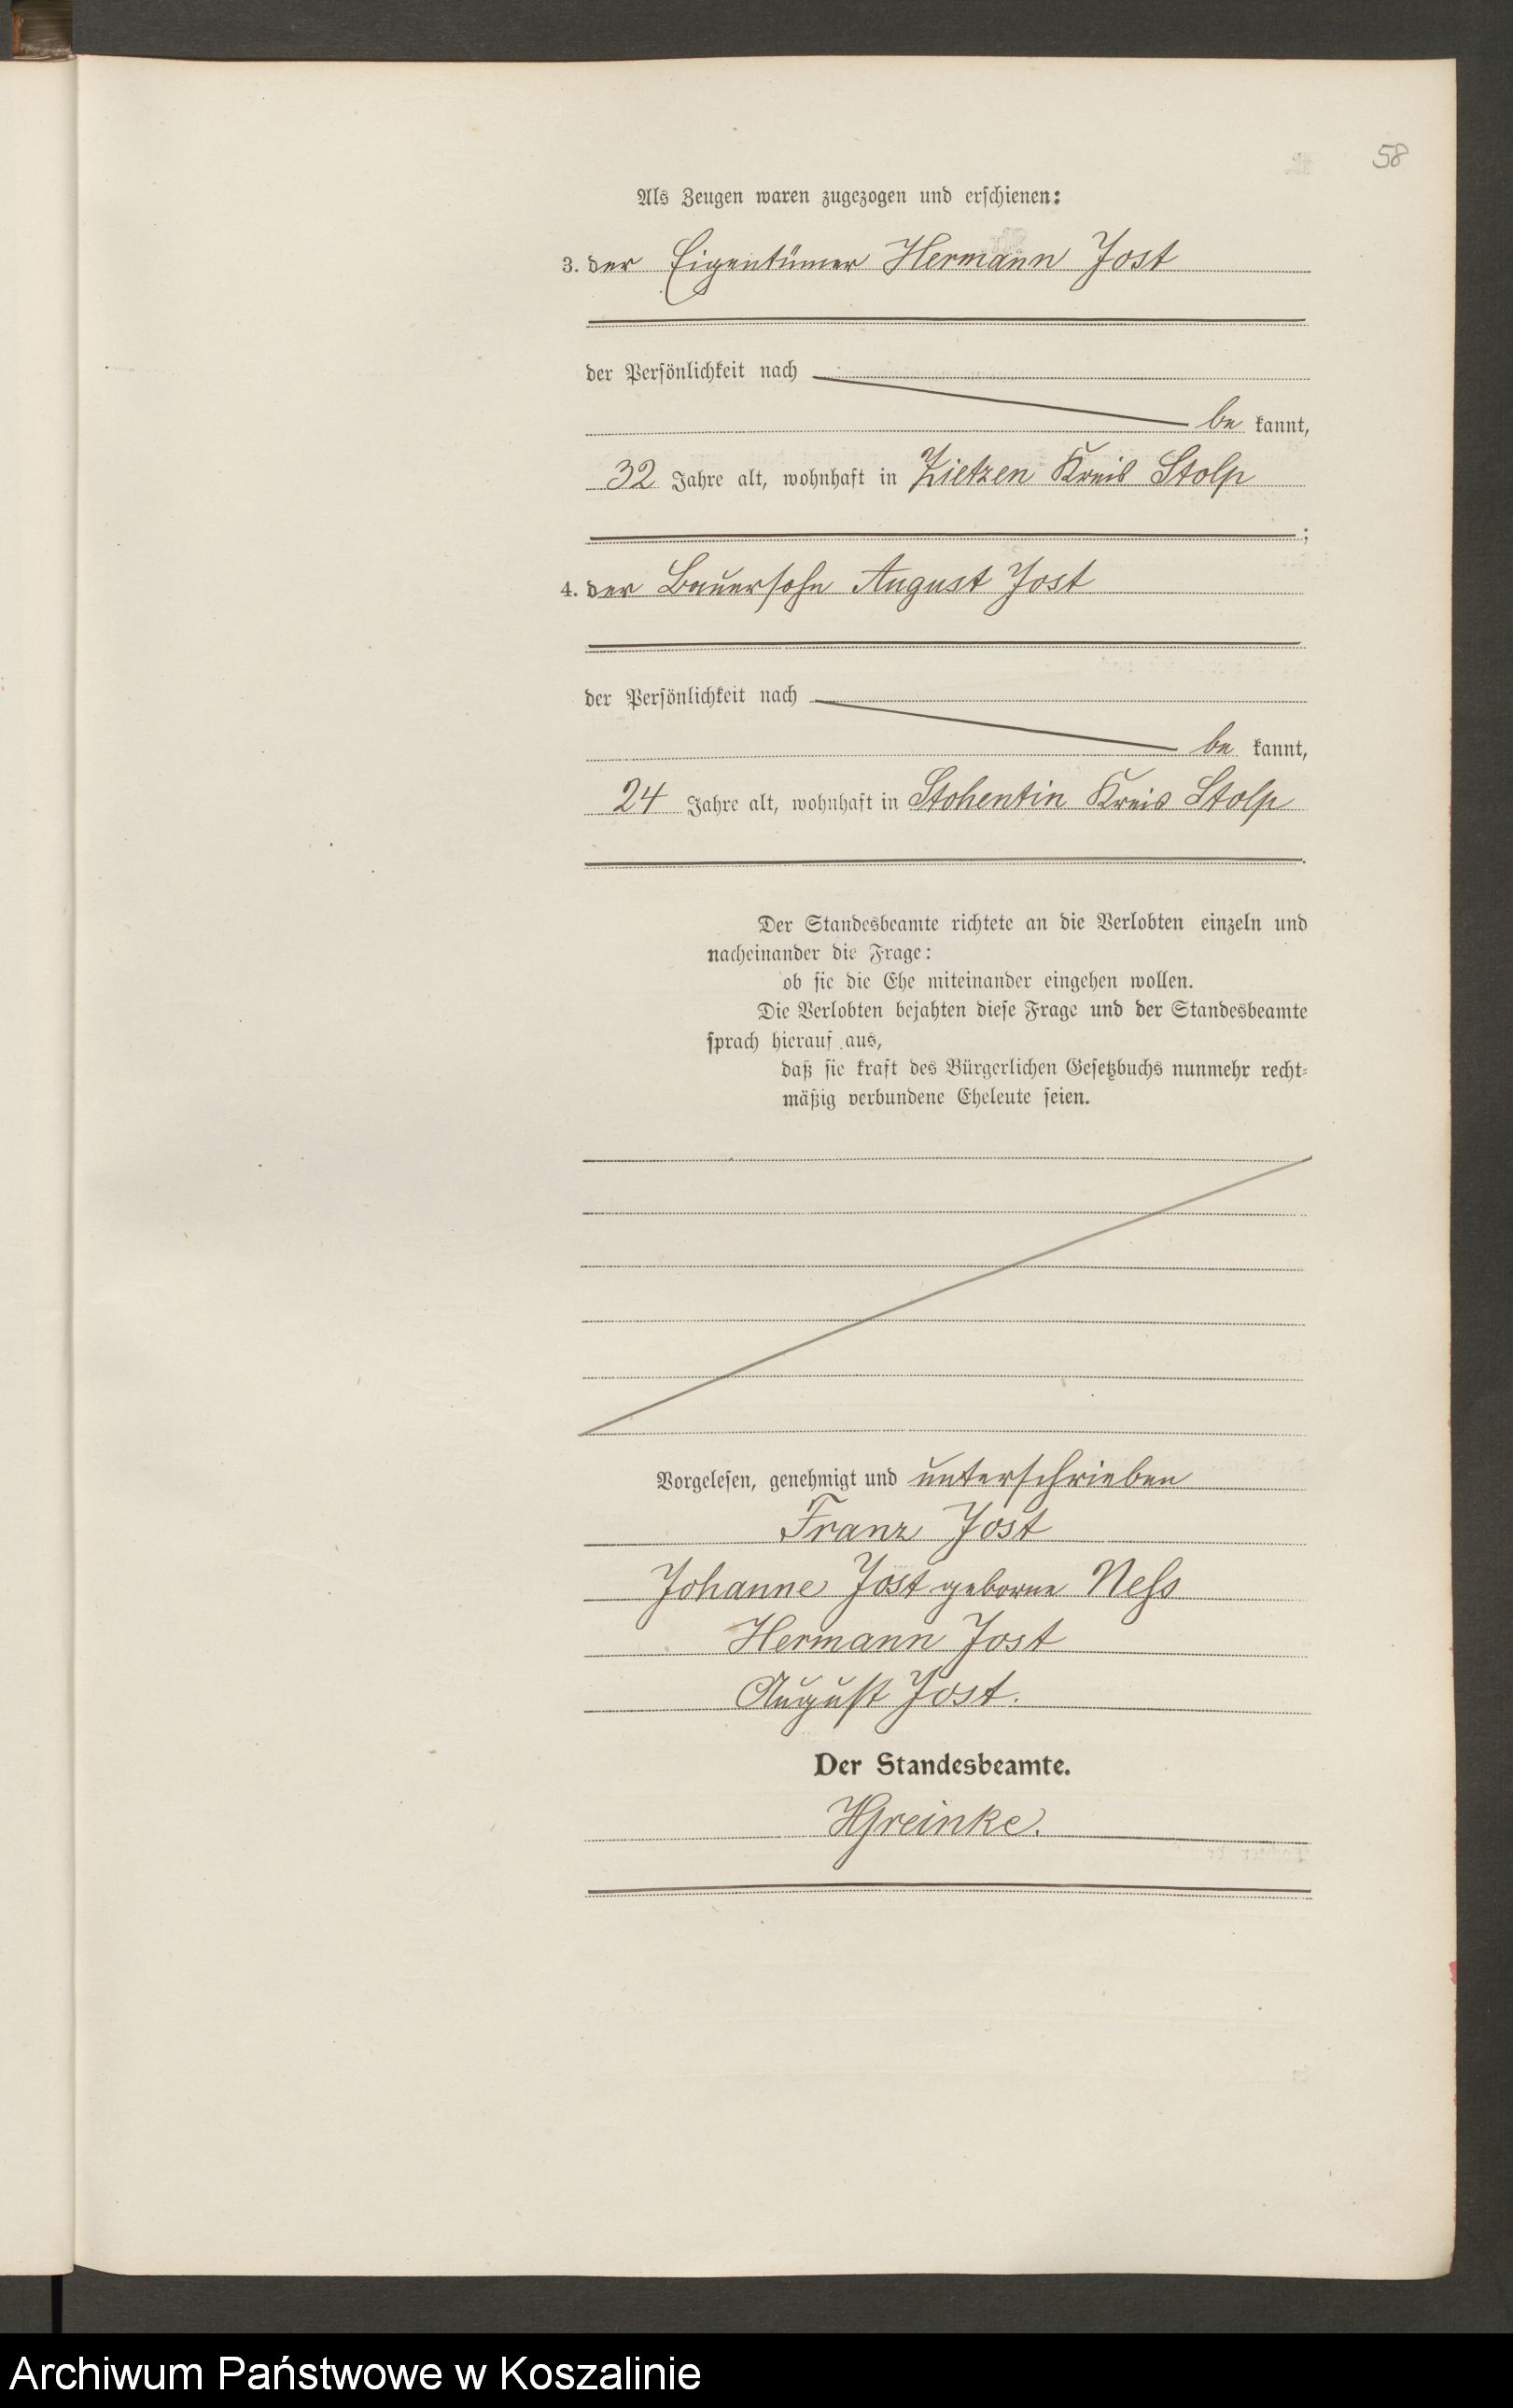 58
Als Zeugen waren zugezogen und erschienen:
3. der Eigentümer Hermann Jost
der Persönlichkeit nach
be kannt,
32 Jahre alt, wohnhaft in Zietzen Kreis Stolp
;
4. der Bauersohn August Jost
der Persönlichkeit nach
be kannt,
24 Jahre alt, wohnhaft in Stohentin Kreis Stolp
.
Der Standesbeamte richtete an die Verlobten einzeln und
nacheinander die Frage:
ob sie die Ehe miteinander eingehen wollen.
Die Verlobten bejahten diese Frage und der Standesbeamte
sprach hierauf aus,
daß sie kraft des Bürgerlichen Gesetzbuchs nunmehr recht-
mäßig verbundene Eheleute seien.
Vorgelesen, genehmigt und unterschrieben
Franz Jost
Johanne Jost geborne Ness
Hermann Jost
August Jost.
Der Standesbeamte.
HGreinke.
Archiwum Państwowe w Koszalinie